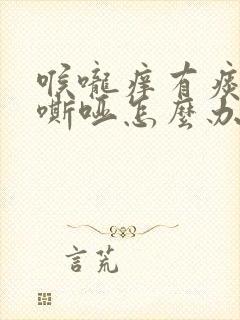 喉嚨痒有痰
嘶啞怎麼办
言荒